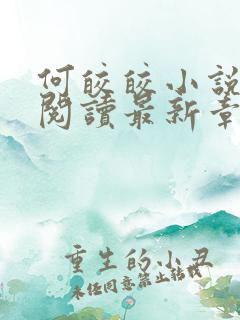 何皎皎小說
閱讀最新章
重生的小丑
未经同意禁止转载